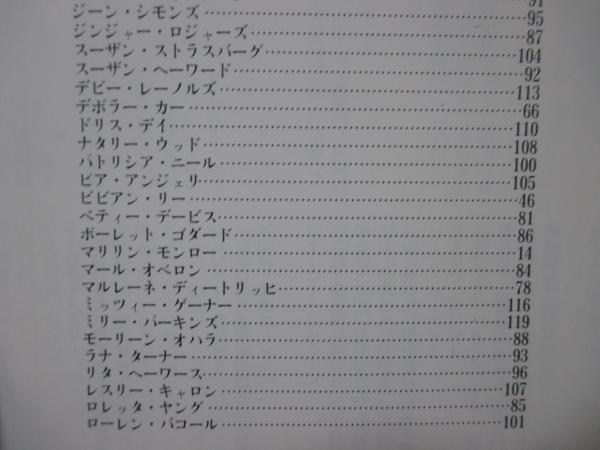 91
ジーン・シモンズ……………95
ジンジャー・ロジャーズ……………87
スーザン・ストラスバーグ……………104
スーザン・ヘーワード……………92
デビー・レーノルズ……………113
デボラー・カー……………66
ドリス・デイ……………110
ナタリー・ウッド……………108
パトリシア・ニール……………100
ピア・アンジェリ……………105
ビビアン・リー……………46
ベティー・デービス……………81
ポーレット・ゴダード……………86
マリリン・モンロー……………14
マール・オベロン……………84
マルレーネ・ディートリッヒ……………78
ミッツィー・ゲーナー……………116
ミリー・パーキンズ……………119
モーリーン・オハラ……………88
ラナ・ターナー……………93
リタ・ヘーワース……………96
レスリー・キャロン……………107
ロレッタ・ヤング……………85
ローレン・バコール……………101